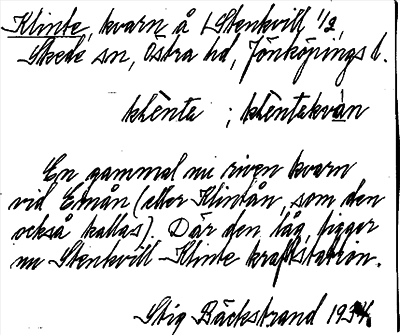 Klinte, kvarn å Stenkvill 1/2,
Skede sn, Östra hd, Jönköpings l.
klènte ; klèntekvàn
En gammal nu riven kvarn
vid Emån (eller Klintån, som den
också kallas). Där den låg, ligger
nu Stenkvill-Klinte kraftstation.
Stig Bäckstrand 1934.